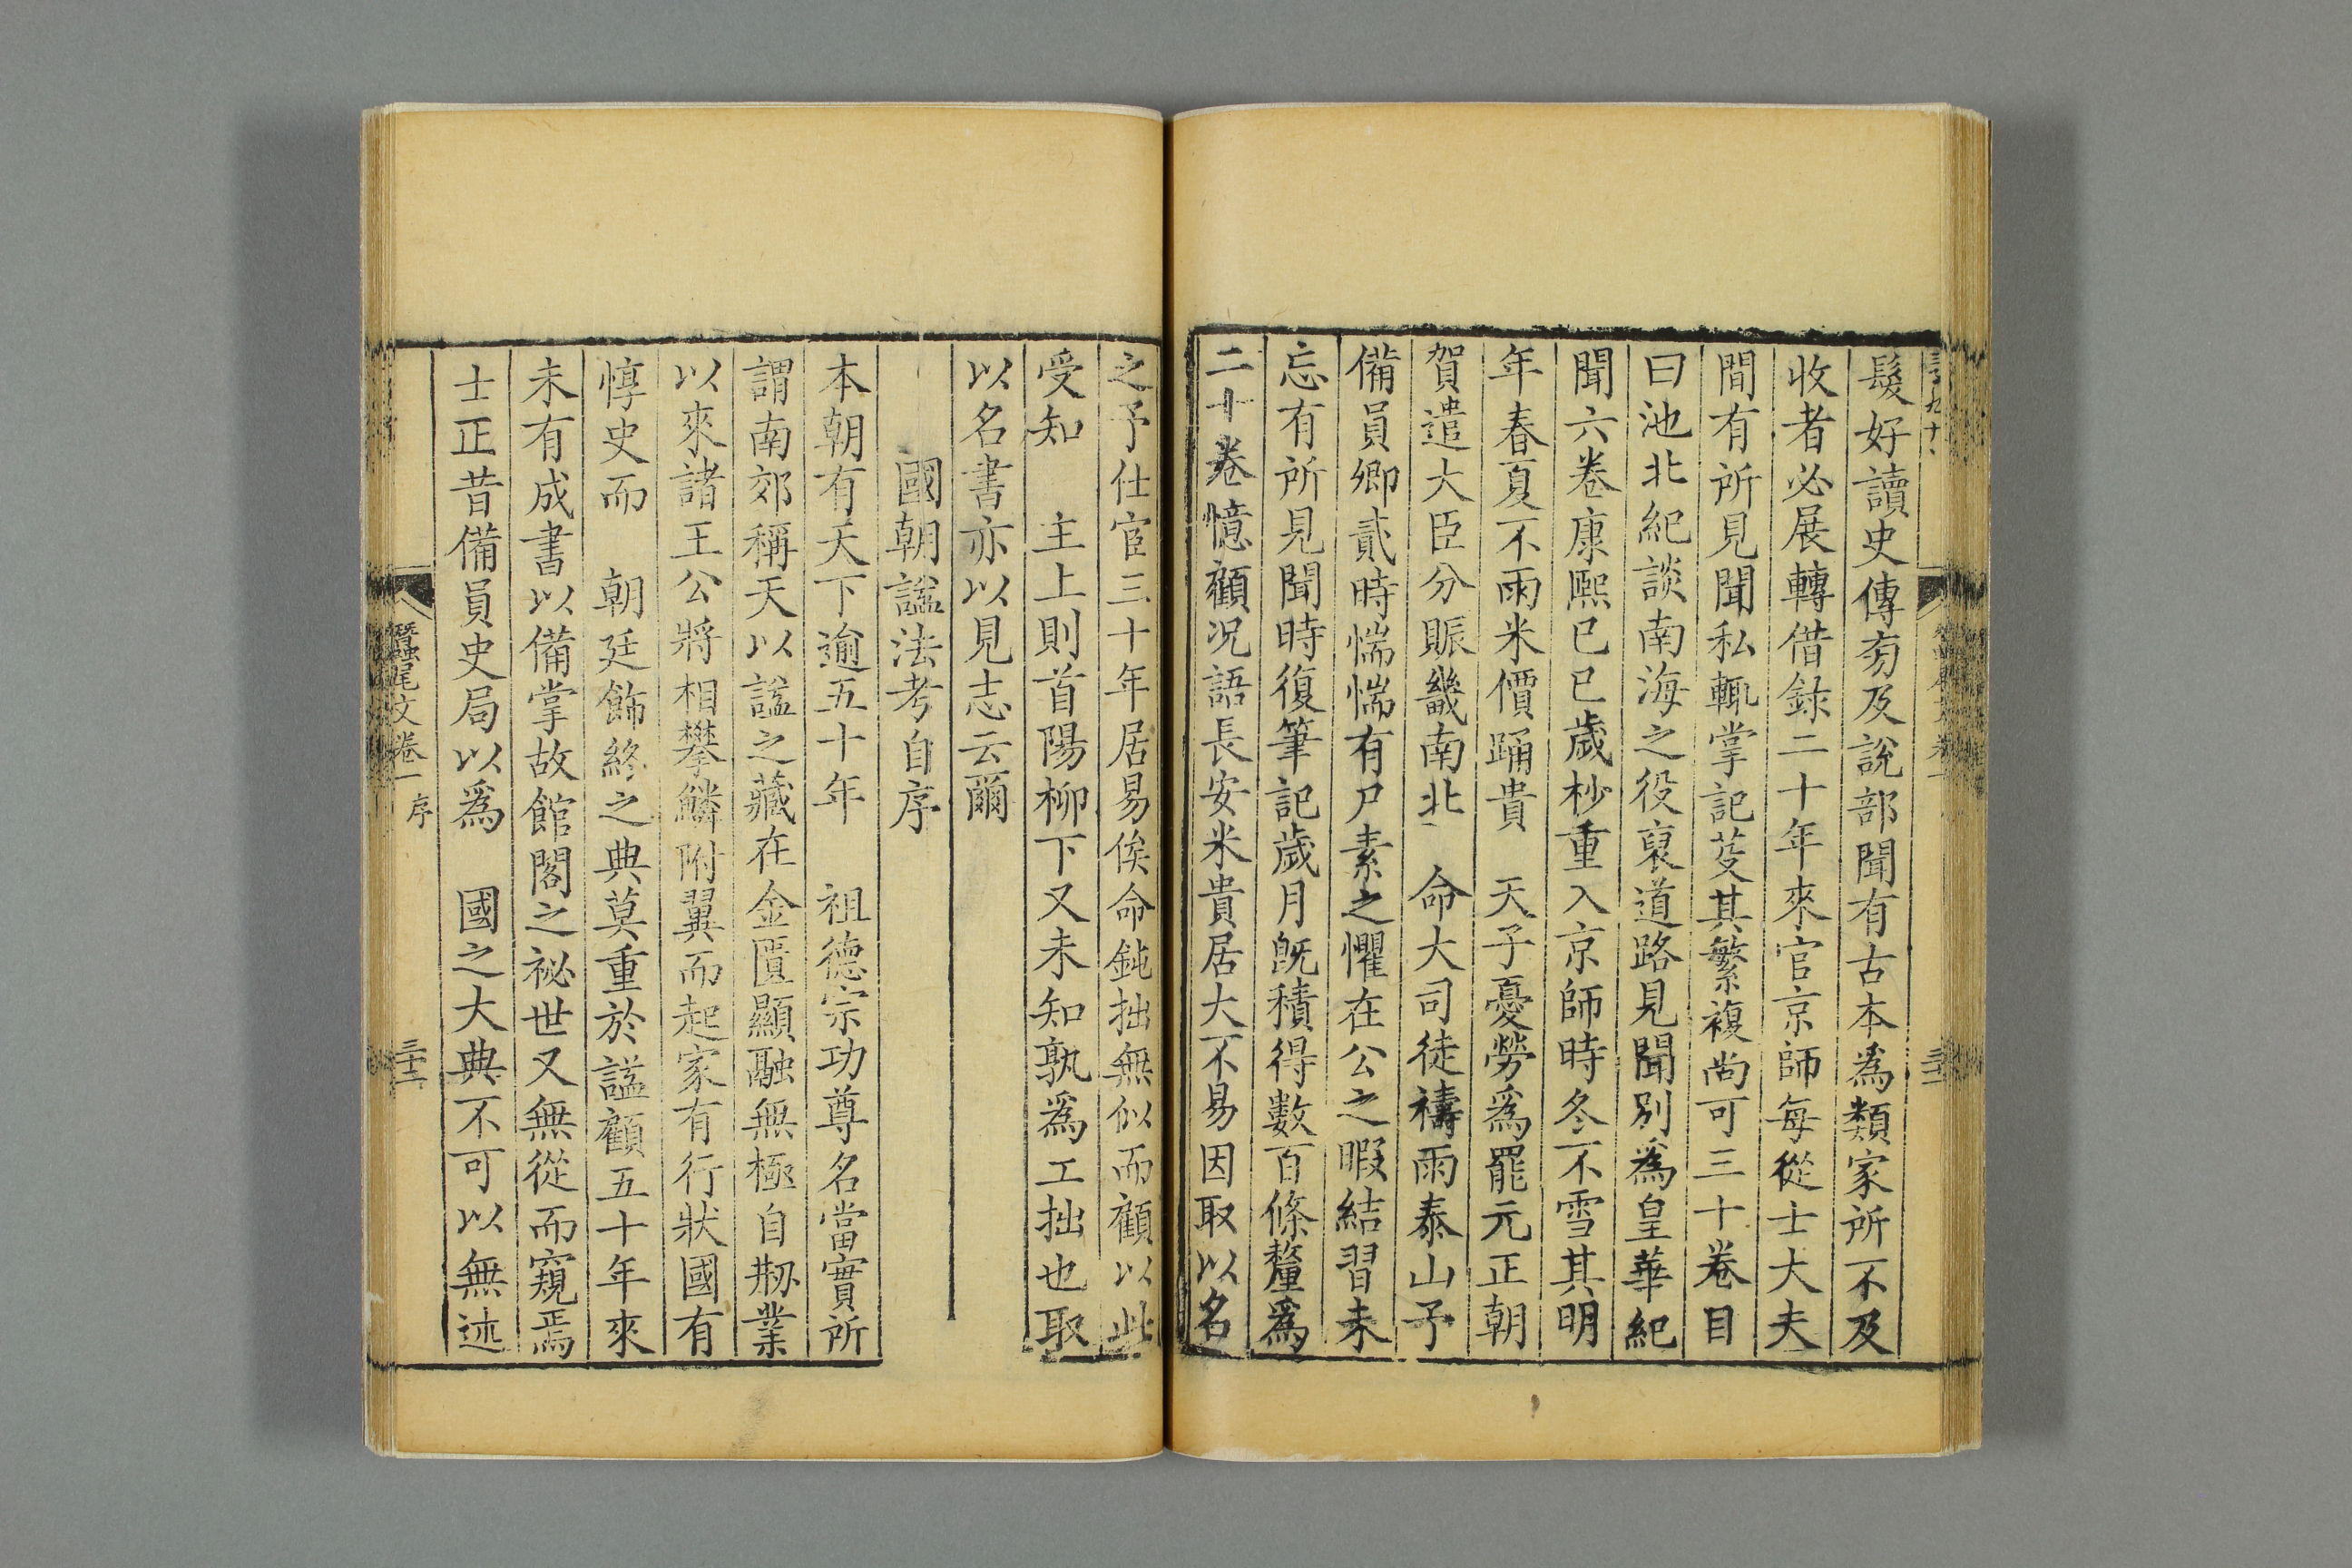 髮好讀史傳旁及說部聞有古本爲類家所不及
收者必展轉借錄二十年來官京師每從士大夫
間有所見聞私輒掌記芟其繁複尚可三十卷目
曰池北紀談南海之役裒道路見聞別爲皇華紀
聞六卷康熙己巳歲杪重入京師時冬不雪其明
年春夏不雨米價踊貴　天子憂勞爲罷元正朝
賀遣大臣分賑畿南北　命大司徒禱雨泰山予
備員卿貳時惴惴有尸素之懼在公之暇結習未
忘有所見聞時復筆記歲月旣積得數百條釐爲
二十卷憶顧况語長安米貴居大不易因取以名
之予仕宦三十年居易俟命鈍拙無似而顧以此
受知　主上則首陽柳下又未知孰爲工拙也取
以名書亦以見志云爾
國朝謚法考自序
本朝有天下逾五十年　祖德宗功尊名當實所
謂南郊稱天以謚之藏在金匱顯融無極自刱業
以來諸王公將相攀鱗附翼而起家有行狀國有
惇史而　朝廷飾終之典莫重於謚顧五十年來
未有成書以備掌故館閣之祕世又無從而窺焉
士正昔備員史局以爲　國之大典不可以無述
蠶尾文卷一　序　三十二